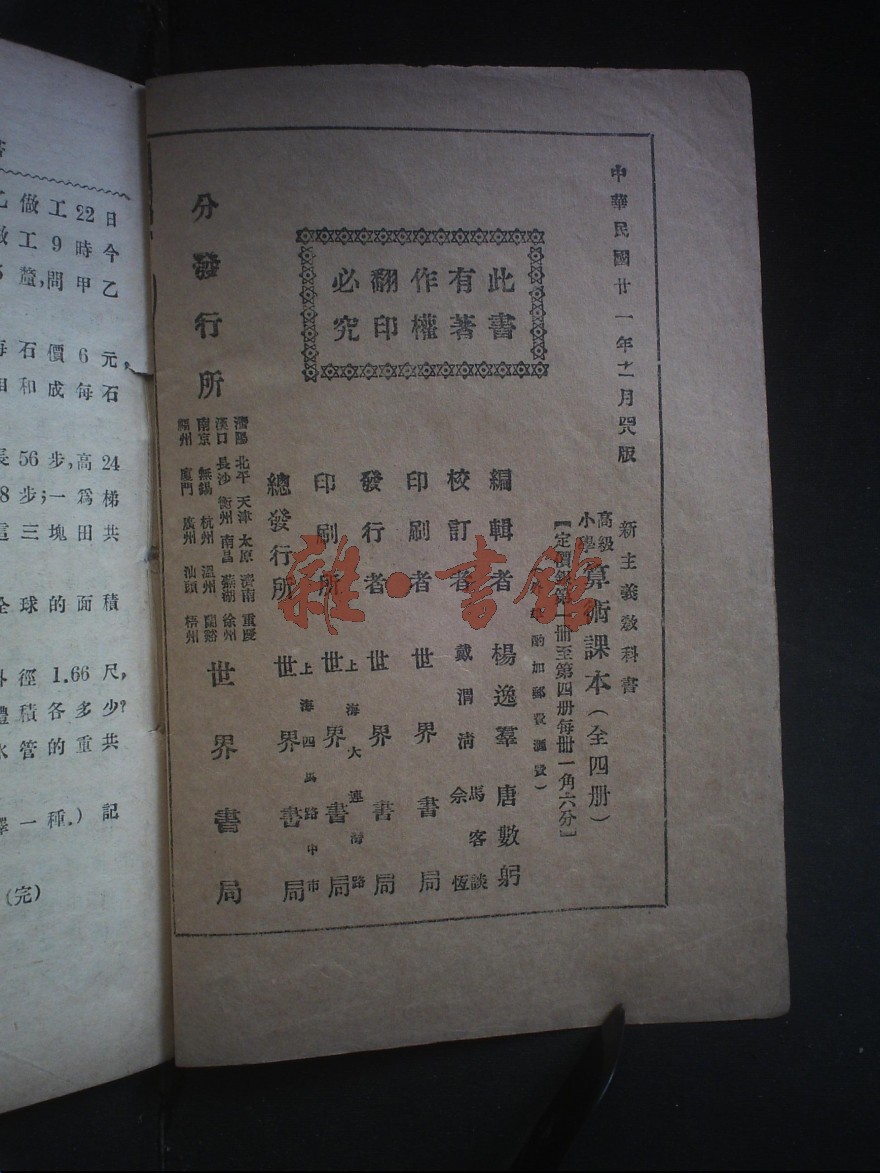 中華民國廿一年十二月咒版
新主義教科書
高級
小學
算術課本（全四册）
【定價銀第一册至第四册每册一角六分】
酌加郵費滙費）
此書
有著
作權
翻印
必究
編輯者 楊逸羣 唐數躬
校訂者 戴渭清 余恆 馬客談
印刷者 世界書局
發行者 世界書局
印刷所 上海大連灣路 世界書局
總發行所 上海四馬路中市 世界書局
分發行所
瀋陽 北平 天津 太原 濟南 重慶
漢口 長沙 衡州 南昌 蕪湖 徐州
南京 無錫 杭州 溫州 蘭谿
福州 廈門 廣州 汕頭 梧州
世界書局
雜·書館
乙做工22日
做工9時今
釐,問甲乙
每石價6元,
和成每石
長56步,高24
8步;一爲梯
這三塊田共
全球的面積
外徑1.66尺,
體積各多少?
水管的重共
擇一種.）記
(完)